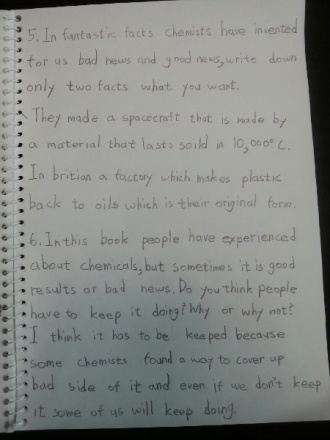 5. In fantastic facts chemists have invented
for us bad news and good news, write down
only two facts what you want.
They made a spacecraft that is made by
a material that lasts soild in 10,000°C.
In brition a factory which makes plastic
back to oils which is their original form.
6. In this book people have experienced
about chemicals, but sometimes it is good
results or bad news. Do you think people
have to keep it doing? Why or why not?
I think it has to be keeped because
some chemists found a way to cover up
bad side of it and even if we don't keep
it some of us will keep doing.